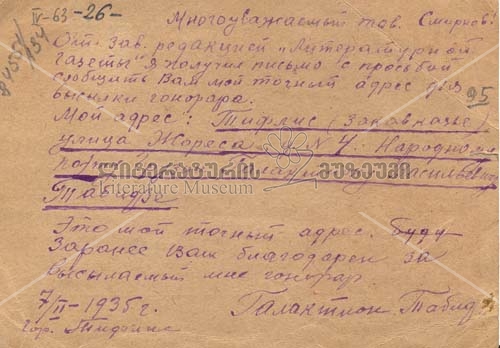 IV-63-26-
95
Многоуважаемый тов. Смирнов!
От зав. редакцией "Литературной
газеты" я получил письмо с просьбой
сообщить Вам мой точный адрес для
высылки гонорара.
Мой адрес: Тифлис (Закавказье)
улица Жореса N 4: Народному
ლიტერატურის მუზეუმი
Literature Museum
Табидзе
Это мой точный адрес. Буду
Заранее Вам благодарен за
высылаемый мне гонорар
7/II-1935г.
гор. Тифлис
Галактион Табид